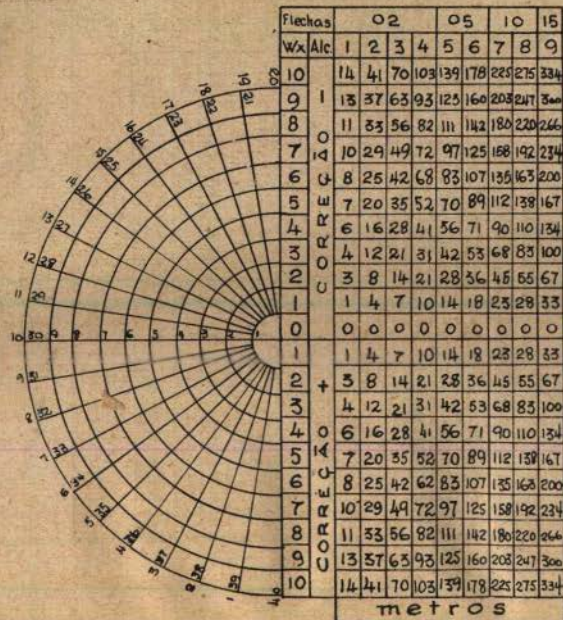 Flechas 02 05 10 15
Wx Alc 1 2 3 4 5 6 7 8 9
10 14 41 70 103 139 178 225 275 334
9 13 37 63 93 125 160 203 247 300
8 11 33 56 82 111 142 180 220 266
7 10 29 49 72 97 125 158 192 234
6 8 25 42 68 83 107 135 163 200
5 7 20 35 52 70 89 112 138 167
4 6 16 28 41 56 71 90 110 134
3 4 12 21 31 42 53 68 83 100
2 3 8 14 21 28 36 45 55 67
1 1 4 7 10 14 18 23 28 33
0 0 0 0 0 0 0 0 0 0
1 1 4 7 10 14 18 23 28 33
2 3 8 14 21 28 36 45 55 67
3 4 12 21 31 42 53 68 83 100
4 6 16 28 41 56 71 90 110 134
5 7 20 35 52 70 89 112 138 167
6 8 25 42 62 83 107 135 163 200
7 10 29 49 72 97 125 158 192 234
8 11 33 56 82 111 142 180 220 266
9 13 37 63 93 125 160 203 247 300
10 14 41 70 103 139 178 225 275 334
metros
CORREÇÃO -
CORREÇÃO +
20
19 21
18 22
17 23
16 24
15 25
14 26
13 27
12 28
11 29
10 30 9 8 7 6 5 4 3 2 1
9 31
8 32
7 33
6 34
5 35
4 36
3 37
2 38
1 39
40